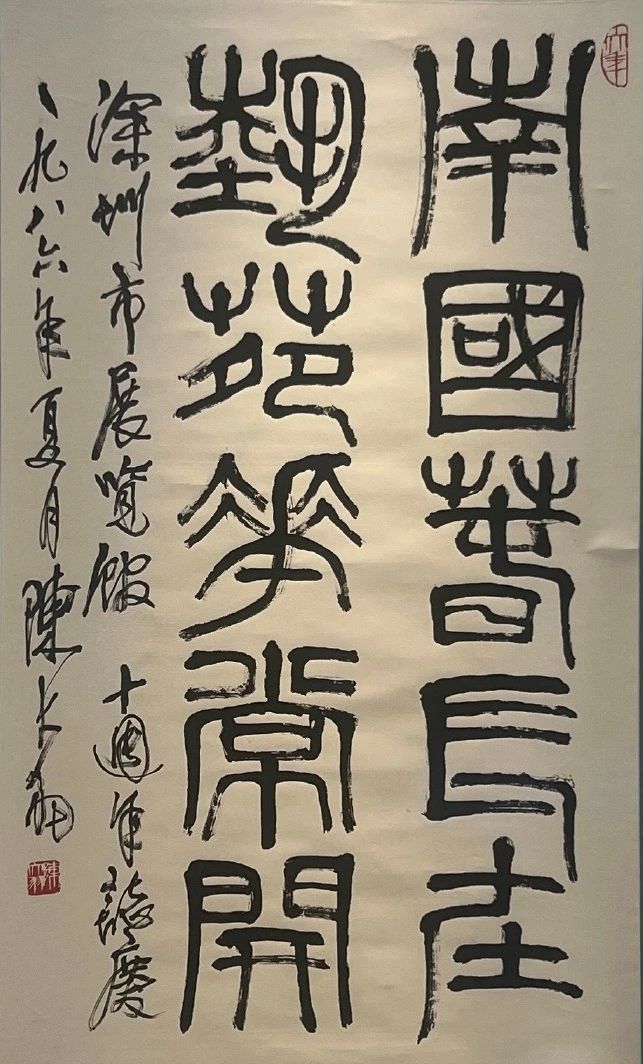 南國春長在
藝苑華常開
深圳市展覽館 十週年誌慶
一九八六年夏月 陳大羽
大年
陳大羽